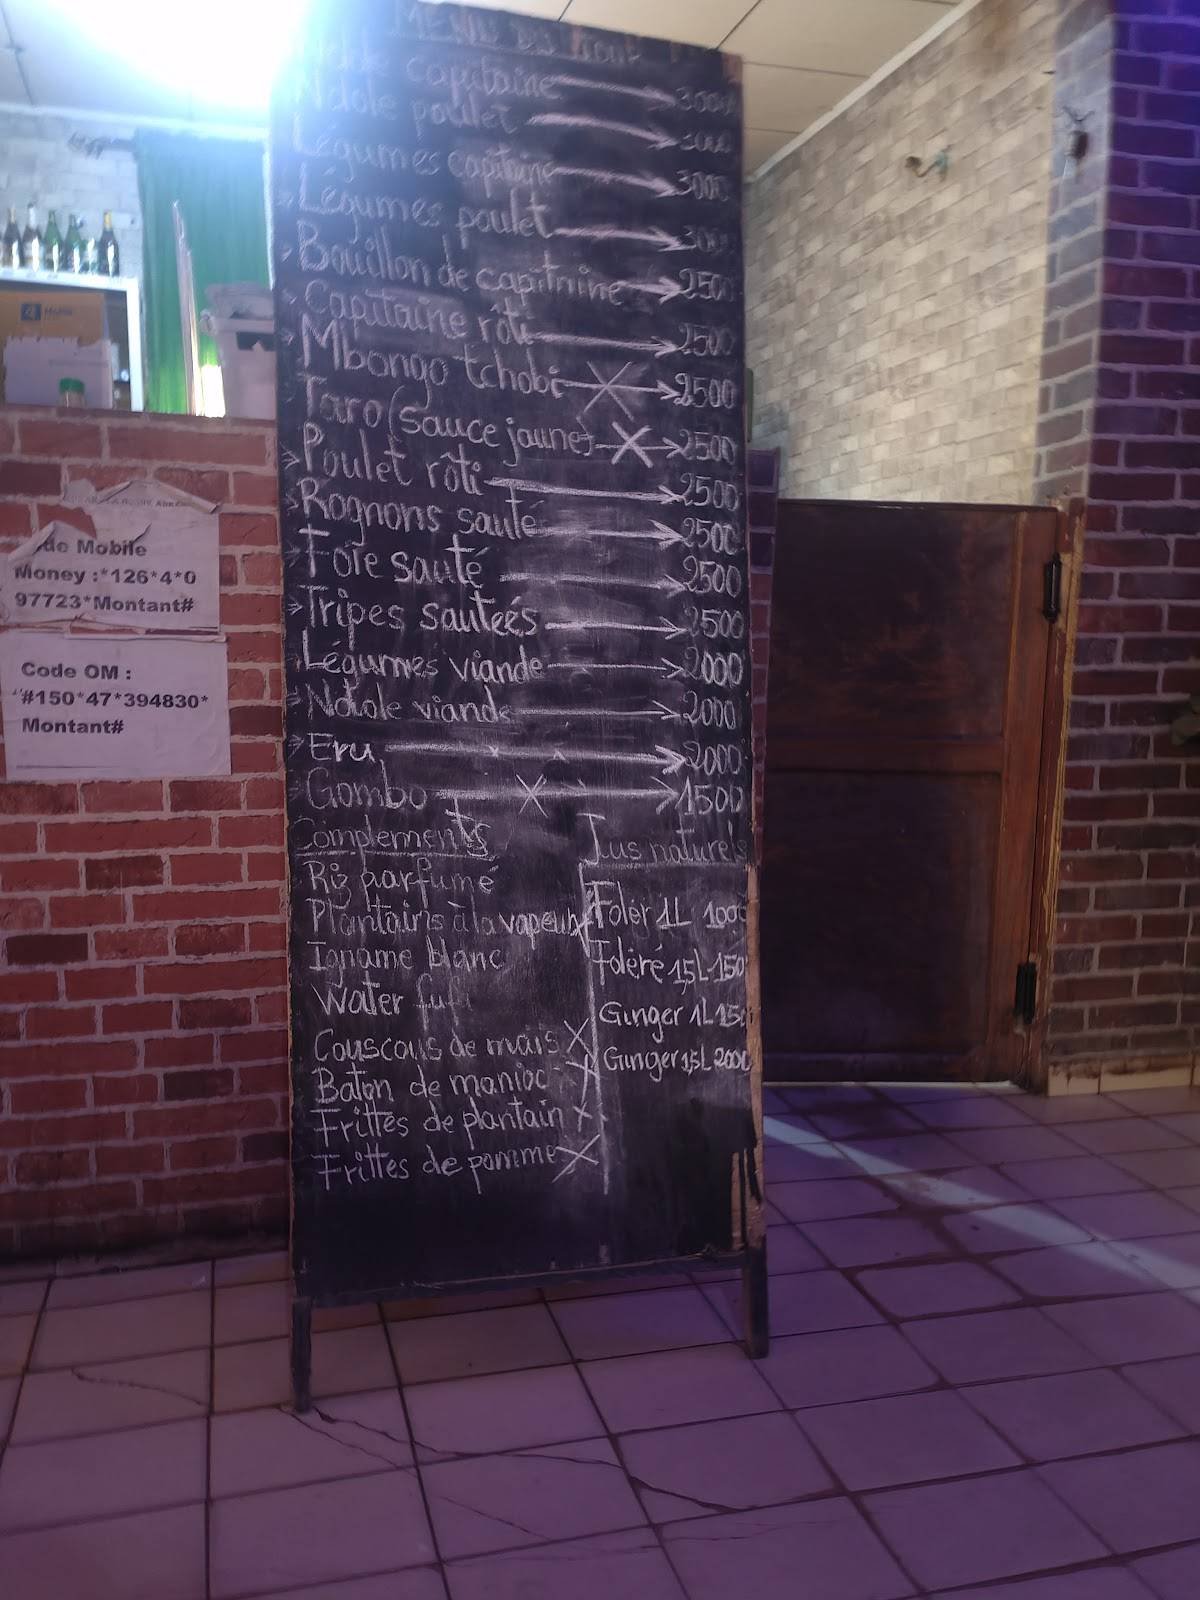 MENU DU JOUR
Ndole capitaine 3000
Ndole poulet 3000
Légumes capitaine 3000
Légumes poulet 3000
Bouillon de capitaine 2500
Capitaine rôti 2500
Mbongo tchobi X 2500
Taro (sauce jaune) X 2500
Poulet rôti 2500
Rognons sauté 2500
Foie sauté 2500
Tripes sauteés 2500
Légumes viande 2000
Ndole viande 2000
Eru 2000
Gombo X 1500
Complements
Riz parfumé
Plantains à la vapeur
Igname blanc
Water fufu
Couscous de maïs X
Baton de manioc X
Frittes de plantain X
Frittes de pomme X
Jus naturels
Foler 1L 1000
Foleré 1,5L 150
Ginger 1L 150
Ginger 1,5L 2000
de Mobile
Money :*126*4*0
97723*Montant#
Code OM :
#150*47*394830*
Montant#